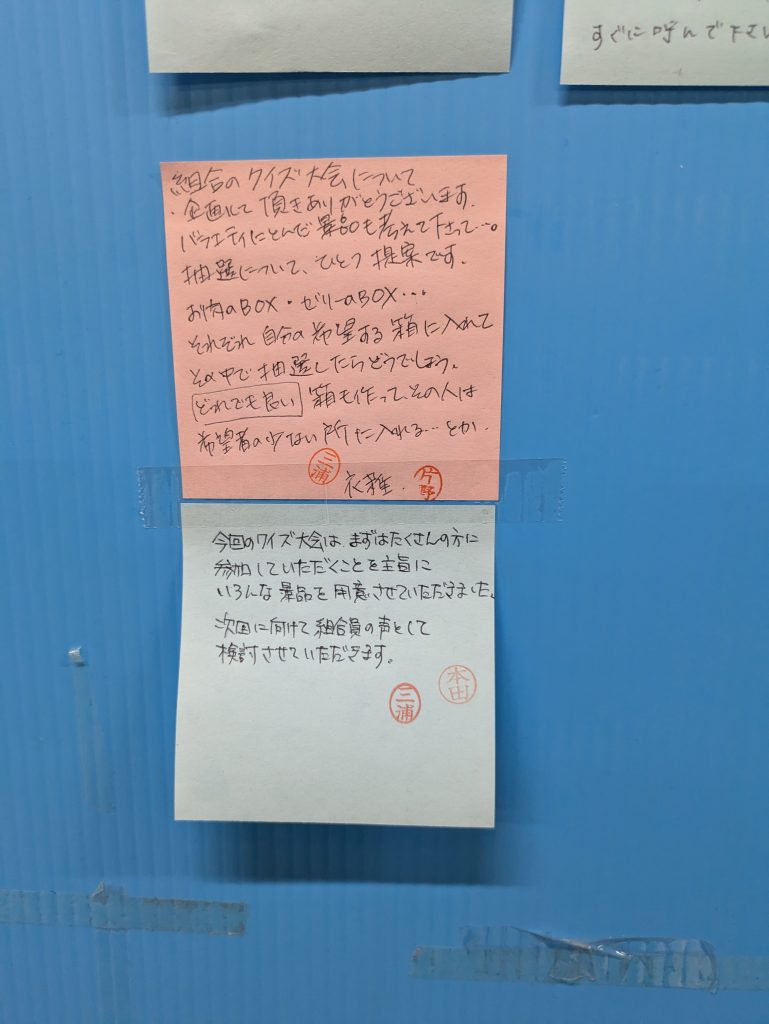 すぐに呼んで下さい
組合のクイズ大会について
・企画して頂きありがとうございます。
バラエティにとんだ景品も考えて下さって…。
抽選について、ひとつ提案です。
お肉のBOX・ゼリーのBOX・・・
それぞれ自分の希望する箱に入れて
その中で抽選したらどうでしょう。
どれでも良い 箱も作って、その人は
希望者の少ない所に入れる…とか.
三浦 衣雅. 片野
今回のクイズ大会は、まずはたくさんの方に
参加していただくことを主旨に
いろんな景品を用意させていただきました。
次回に向けて組合員の声として
検討させていただきます。
本田
三浦